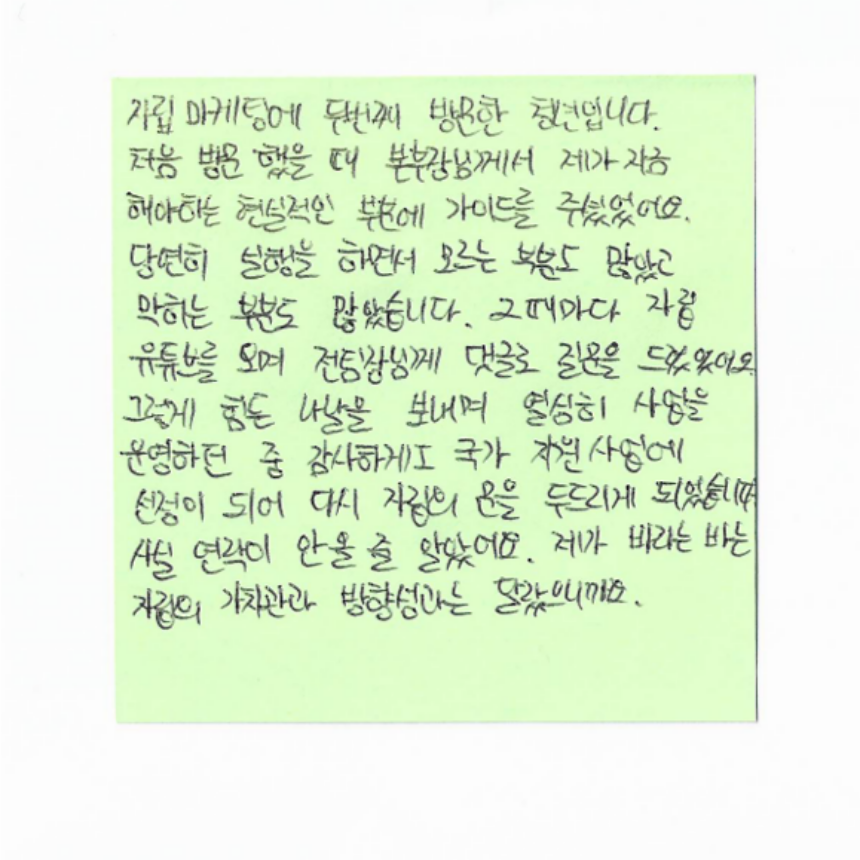 자립 마케팅에 두번째 방문한 청년입니다.
처음 방문 했을 때 본부장님께서 제가 지금
해야하는 현실적인 부분에 가이드를 주셨었어요.
당연히 실행을 하면서 모르는 부분도 많았고
막히는 부분도 많았습니다. 그때마다 자립
유튜브를 보며 전팀장님께 댓글로 질문을 드렸었어요.
그렇게 힘든 나날을 보내며 열심히 사업을
운영하던 중 감사하게도 국가 지원 사업에
선정이 되어 다시 자립의 문을 두드리게 되었습니다
사실 연락이 안 올 줄 알았어요. 제가 바라는 바는
자립의 가치관과 방향성과는 달랐으니까요.